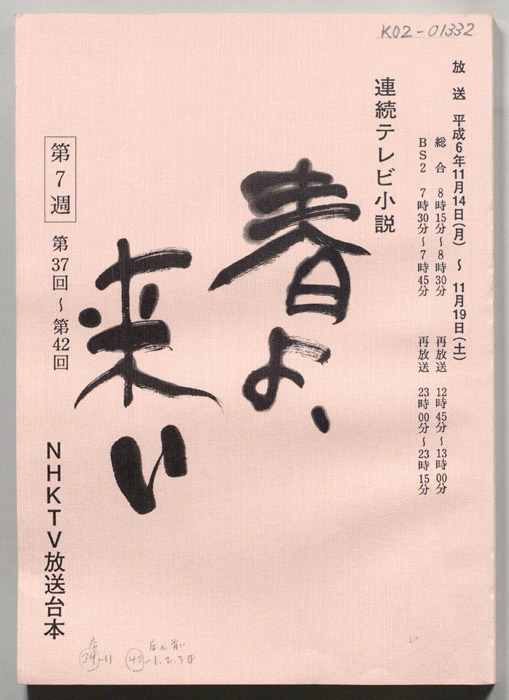 K02-01332
放送 平成6年11月14日(月) ～ 11月19日(土)
総合 8時15分～8時30分 再放送 12時45分～13時00分
BS2 7時30分～7時45分 再放送 23時00分～23時15分
連続テレビ小説
春よ、
来い
第7週
第37回～第42回
NHKTV放送台本